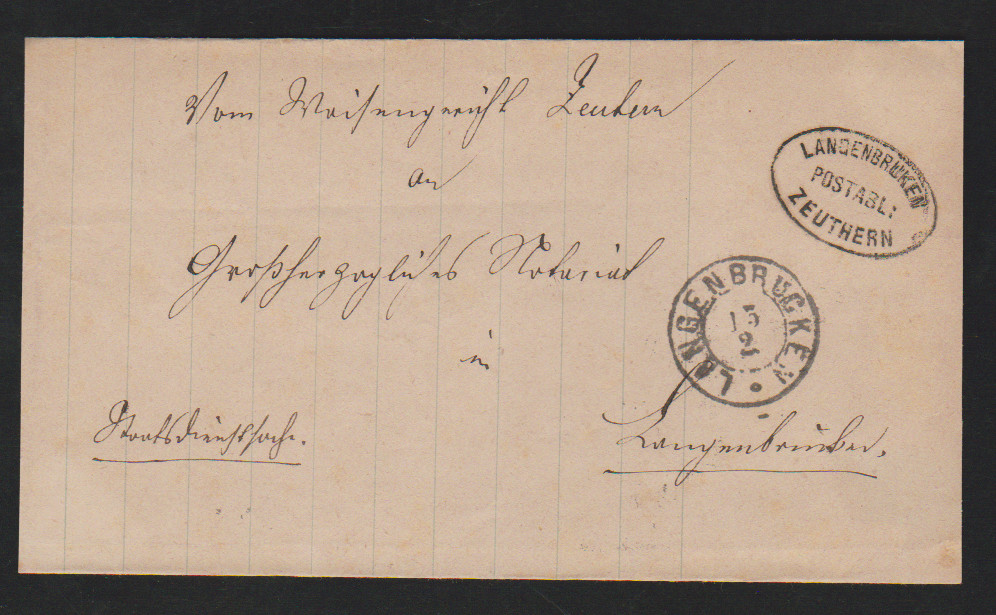 Vom Waisengericht Zeutern
an
Großherzogliches Notariat
in
Staatsdienstsache.
Langenbrücken.
LANGENBRUKEN
POSTABL:
ZEUTHERN
LANGENBRUCKEN
15